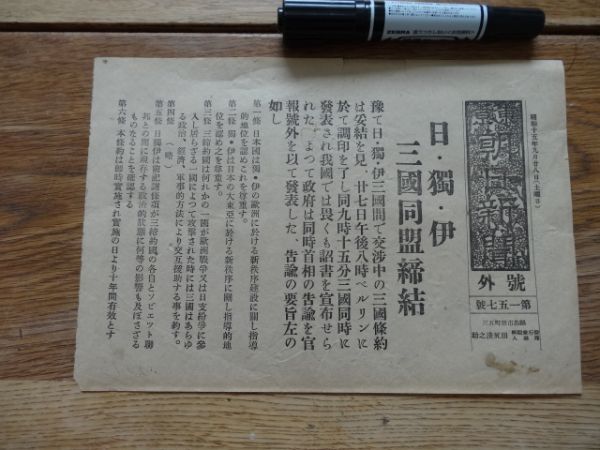 ZEBRA
昭和十五年九月廿八日(土曜日)
號外
第一五七號
日・獨・伊
三國同盟締結
豫て日・獨・伊三國間で交渉中の三國條約
は妥結を見、廿七日午後八時ベルリンに
於て調印を了し同九時十五分三國同時に
發表され我國では畏くも詔書を宣布せら
れた、よつて政府は同時首相の告諭を官
報號外を以て發表した、告諭の要旨左の
如し
第一條 日本國は獨・伊の歐洲に於ける新秩序建設に關し指導
的地位を認めこれを尊重す。
第二條 獨・伊は日本の大東亞に於ける新秩序に關し指導的地
位を認め之を尊重す。
第三條 三締約國は何れかの一國が歐洲戰爭又は日支紛爭に參
入し居らざる一國によつて攻撃された時には三國はあらゆ
る政治、經濟、軍事的方法により交互援助する事を約す。
第四條 (略)
第五條 日獨伊は前記諸條項が三締約國の各自とソビエツト聯
邦との間に現存する政治的狀態に何等の影響も及ぼさざる
ものなることを確認する
第六條 本條約は即時實施され實施の日より十年間有效とす